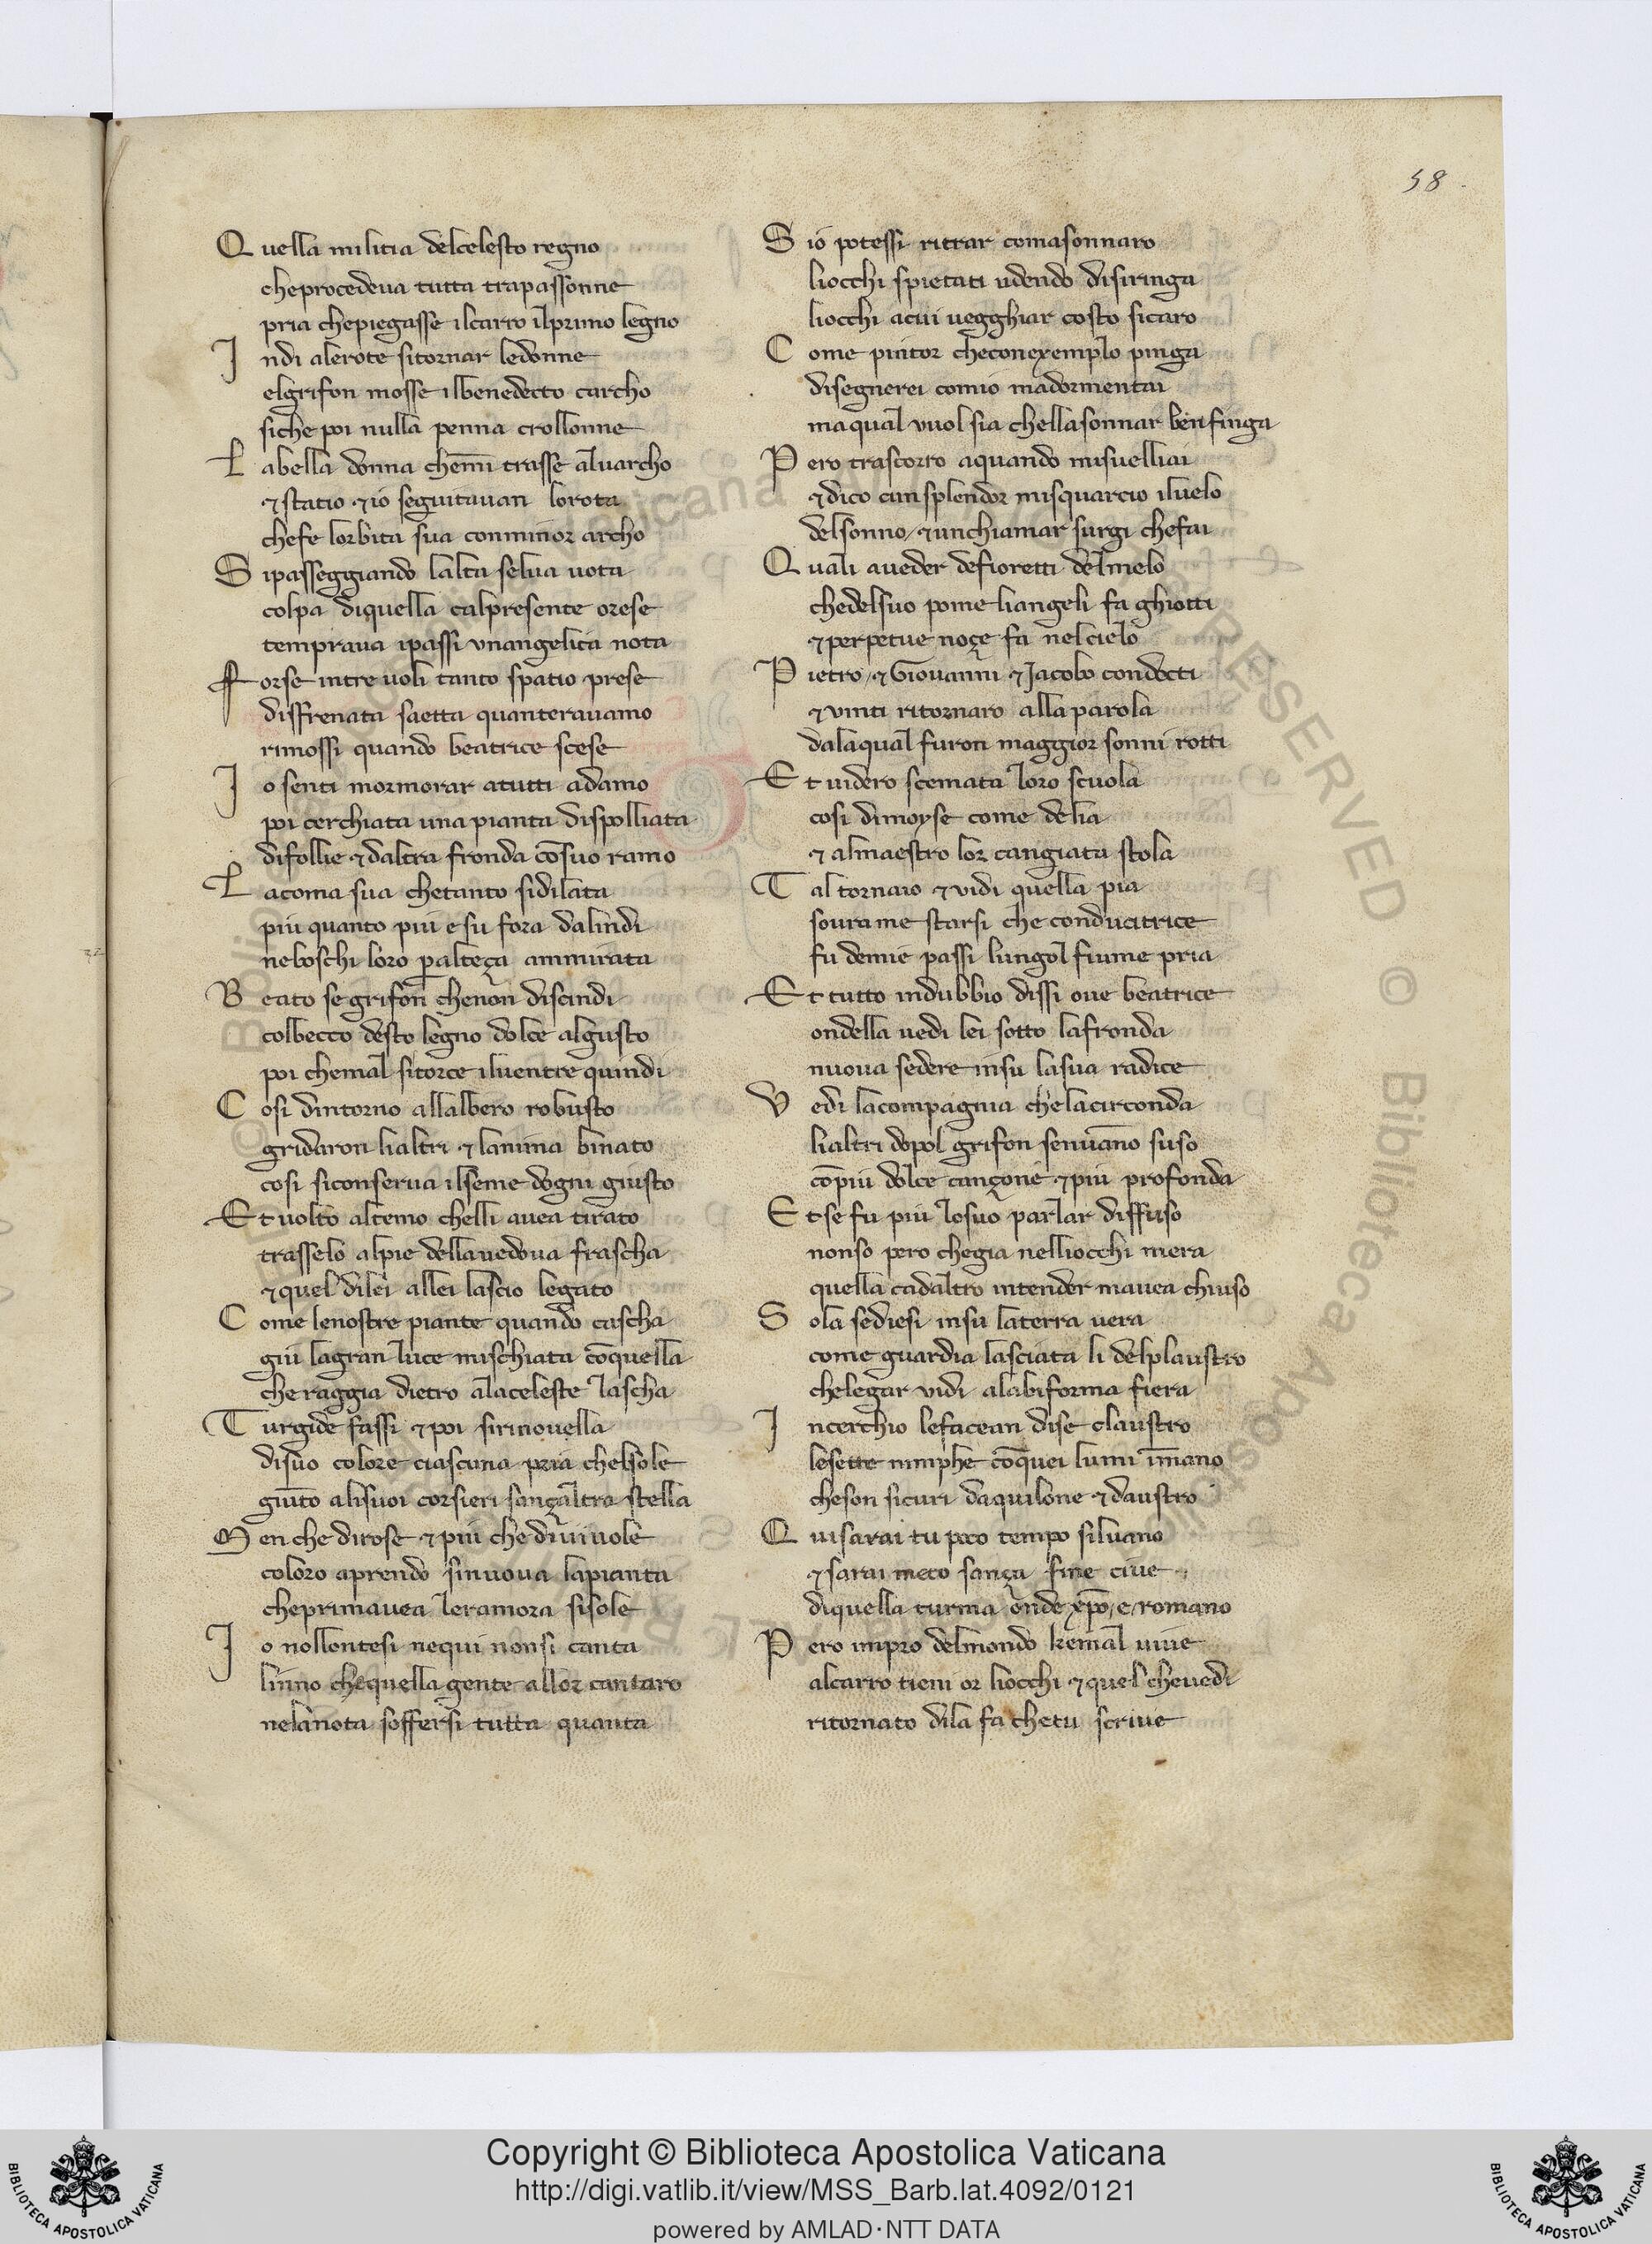 58.
Quella militia delcelesto regno
cheprocedeua tutta trapassonne
pria chepiegasse ilcarro ilprimo legno
Indi alerote sitornar ledonne
elgrifon mosse ilbenedecto carcho
siche poi nulla penna crollonne
Labella donna chem̄i trasse aluarcho
⁊ statio ⁊ io seguitauan lorota
chefe lorbita sua conminor archo
Sipasseggiando lalta selua uota
colpa diquella calpresente crese
tempraua ipassi vnangelica nota
Forse intre uoli tanto spatio prese
diffrenata saetta quanterauamo
rimossi quando beatrice scese
Io senti mormorar atutti adamo
poi cerchiata una pianta dispolliata
difollie ⁊ daltra fronda cōsuo ramo
Lacoma sua chetanto sidilata
piu quanto piu e su fora dalindi
neboschi loro palteça ammirata
Beato se grifon chenon discindi
colbecco desto legno dolce algusto
poi chemal sitorce iluentre quindi
Cosi dintorno allalbero robusto
gridaron lialtri ⁊ lanima binato
cosi siconserua ilseme dogni giusto
Et uolto altemo chelli auea tirato
trasselo alpie dellauedoua frascha
⁊ quel dilei allei lascio legato
Come lenostre piante quando cascha
giu lagran luce mischiata cōquella
che raggia dietro alaceleste lascha
Turgide fassi ⁊ poi sirinouella
disuo colore ciascuna pria chelsole
giūto alisuoi corsieri sançaltra stella
Men che dirose ⁊ piu che diuiuole
coloro aprendo sinuoua lapianta
cheprimauea leramora sisole
Io nollontesi nequi nonsi canta
linno chequella gente allor cantaro
nelanota soffersi tutta quanta
Sio potessi ritrar comasonnaro
liocchi spietati udendo disiringa
liocchi acui uegghiar costo sicaro
Come pintor checonexemplo pinga
disegnerei comio madormentai
maqual vuol sia chellasonnar ben finga
Pero trascorro aquando misuelliai
⁊ dico cunsplendor misquarcio iluelo
delsonno / ⁊ unchiamar surgi chefai
Quali aueder defioretti delmelo
chedelsuo pome liangeli fa ghiotti
⁊ perpetue noçe fa nelcielo
Pietro / ⁊ Giouanni ⁊ Jacobo condocti
⁊ vinti ritornaro alla parola
dalaqual furon maggior sonni rotti
Et uidero scemata loro scuola
cosi dimoyse come delia
⁊ almaestro lor cangiata stola
Tal tornaio ⁊ vidi quella pia
soura me starsi che conducitrice
fu demie passi lungol fiume pria
Et tutto indubbio dissi oue beatrice
ondella uedi lei sotto lafronda
nuoua sedere insu lasua radice
Vedi lacompagnia chelacirconda
lialtri dopol grifon senuāno suso
cōpiu dolce cançone ⁊ piu profonda
Et se fu piu losuo parlar diffuso
nonso pero chegia nelliocchi mera
quella cadaltro intender mauea chiuso
Sola sediesi insu laterra uera
come guardia lasciata li delplaustro
chelegar vidi alabiforma fiera
Incerchio lefacean dise claustro
lesette nimphe cōquei lumi īmano
cheson sicuri daquilone ⁊ daustro
Quisarai tu poco tempo siluano
⁊ sarai meco sança fine ciue
diquella turma onde xp̄o / e / romano
Pero inpro delmondo kemal uiue
alcarro tieni or liocchi ⁊ quel cheuedi
ritornato dila fa chetu scriue
© Biblioteca Apostolica Vaticana
RESERVED © Biblioteca Apostolica
Copyright © Biblioteca Apostolica Vaticana
http://digi.vatlib.it/view/MSS_Barb.lat.4092/0121
powered by AMLAD·NTT DATA
BIBLIOTECA APOSTOLICA VATICANA
BIBLIOTECA APOSTOLICA VATICANA